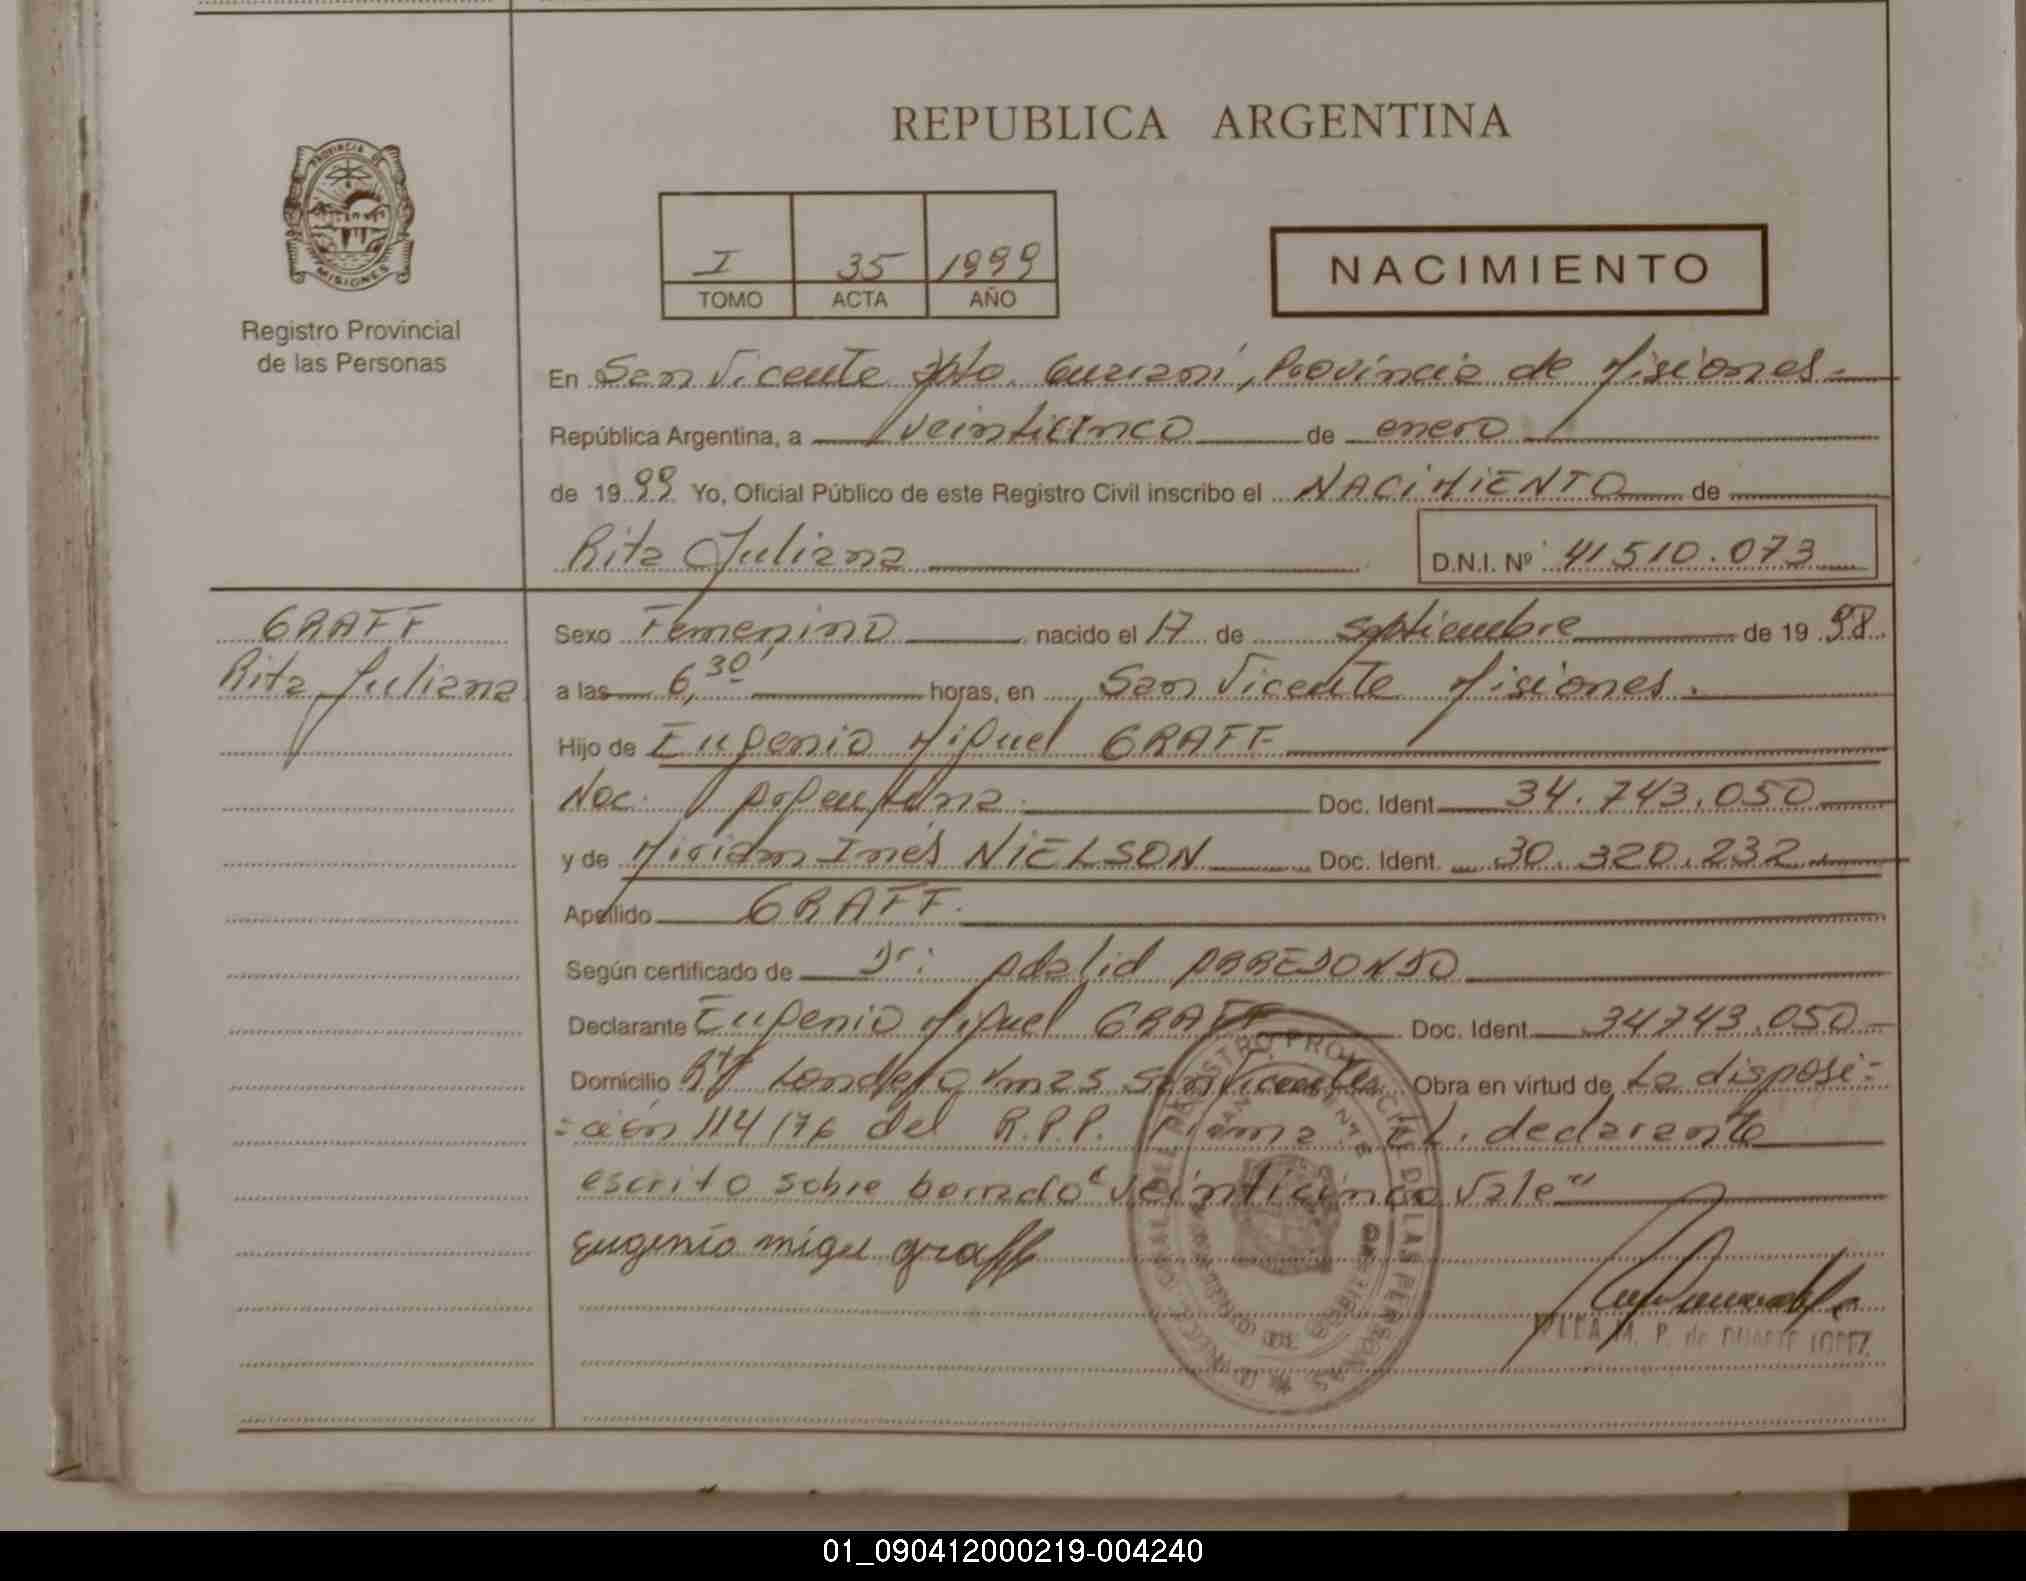 REPUBLICA ARGENTINA
PROVINCIA DE
MISIONES
Registro Provincial
de las Personas
I 35 1999
TOMO ACTA AÑO
NACIMIENTO
En San Vicente Dpto. Guaraní, Provincia de Misiones.-
República Argentina, a veinticinco de enero
de 1999 Yo, Oficial Público de este Registro Civil inscribo el NACIMIENTO de
Rita Juliana D.N.I. Nº 41510.073
GRAFF
Rita Juliana
Sexo Femenino nacido el 17 de septiembre de 1998.
a las 6,30 horas, en San Vicente Misiones.
Hijo de Eugenio Miguel GRAFF
Nac. argentina. Doc. Ident 34.743.050
y de Miriam Inés NIELSON Doc. Ident. 30.320.232
Apellido GRAFF.
Según certificado de Dr. Adalid ARREDONDO
Declarante Eugenio Miguel GRAFF Doc. Ident 34743.050
Domicilio San Vicente. Obra en virtud de La disposi=
=ción 114/76 del R.P.P. Firma: EL. declarante
escrito sobre borrado "veinticinco Vale"
Eugenio migel graff
M. P. de DUARTE LOPEZ
01_090412000219-004240